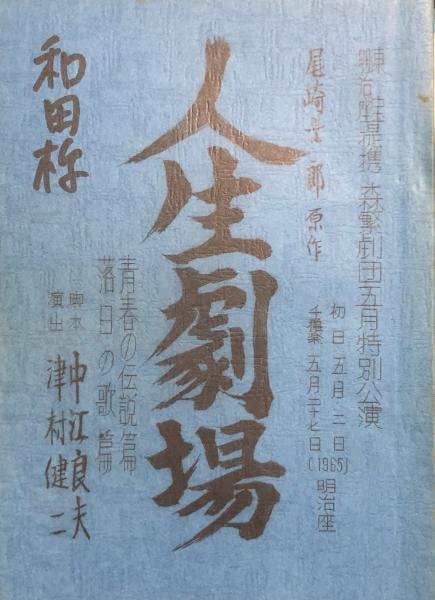 明治座提携・森繁劇団五月特別公演
初日五月二日
千穐楽五月二十七日(1965) 明治座
尾崎士郎 原作
人生劇場
青春の伝説篇
落日の歌篇
脚本 中江良夫
演出 津村健二
和田